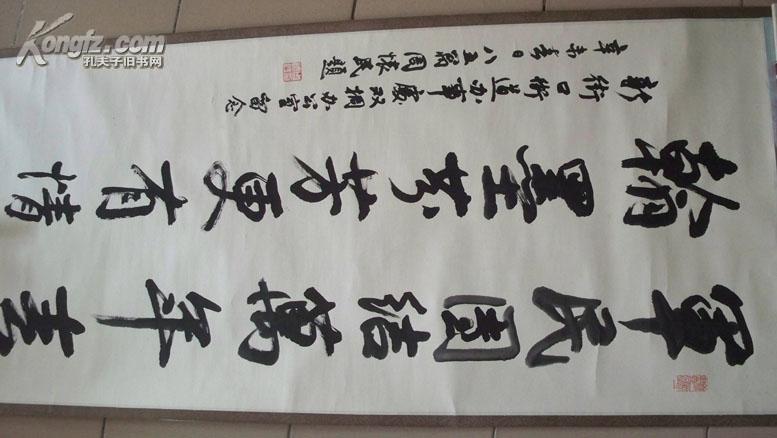 軍民團結萬年
翰墨芬芳更有情
新街口街道办事處双拥办公室留念
辛未春日八五翁周懷民題
Kongfz.com
孔夫子旧书网